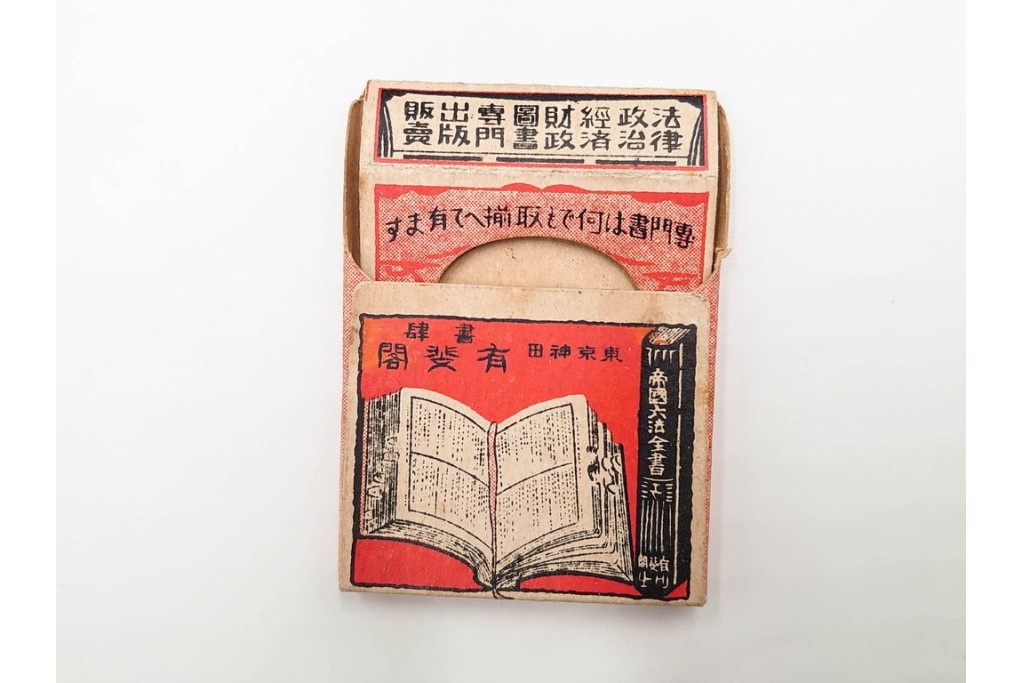 法律政治經済財政圖書専門出版販賣
專門書は何でも取揃へて有ます
東京神田
書肆
有斐閣
帝國六法全書